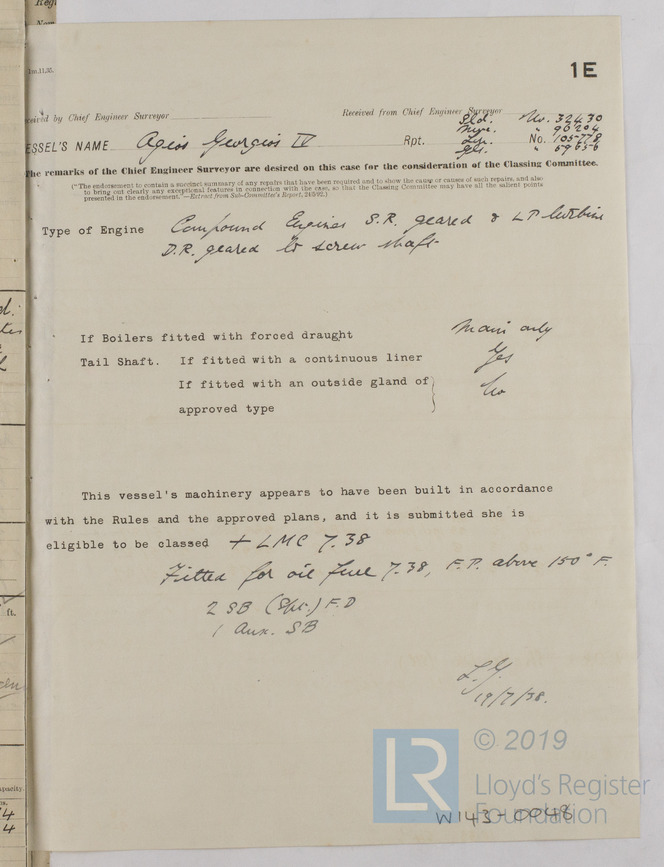 1m.11.35.
1E
Received by Chief Engineer Surveyor
Received from Chief Engineer Surveyor
Sld. No. 32430
Nwc. " 96204
Lpl. No. 105778
Gls. " 59656
VESSEL'S NAME Agios Georgios IV Rpt.
The remarks of the Chief Engineer Surveyor are desired on this case for the consideration of the Classing Committee.
("The endorsement to contain a succinct summary of any repairs that have been required and to show the cause or causes of such repairs, and also
to bring out clearly any exceptional features in connection with the case, so that the Classing Committee may have all the salient points
presented in the endorsement."—Extract from Sub-Committee's Report, 24/5/92.)
Type of Engine Compound Engines S.R. geared & LP turbine
D.R. geared to screw shaft
If Boilers fitted with forced draught Main only
Tail Shaft. If fitted with a continuous liner Yes
If fitted with an outside gland of } No
approved type
This vessel's machinery appears to have been built in accordance
with the Rules and the approved plans, and it is submitted she is
eligible to be classed + LMC 7.38
Fitted for oil fuel 7.38, F.P. above 150° F.
2 SB (Spt.) F.D
1 Aux. SB
L.Y.
19/7/38.
© 2019
LR
Lloyd's Register
Foundation
W143-0048
ft.